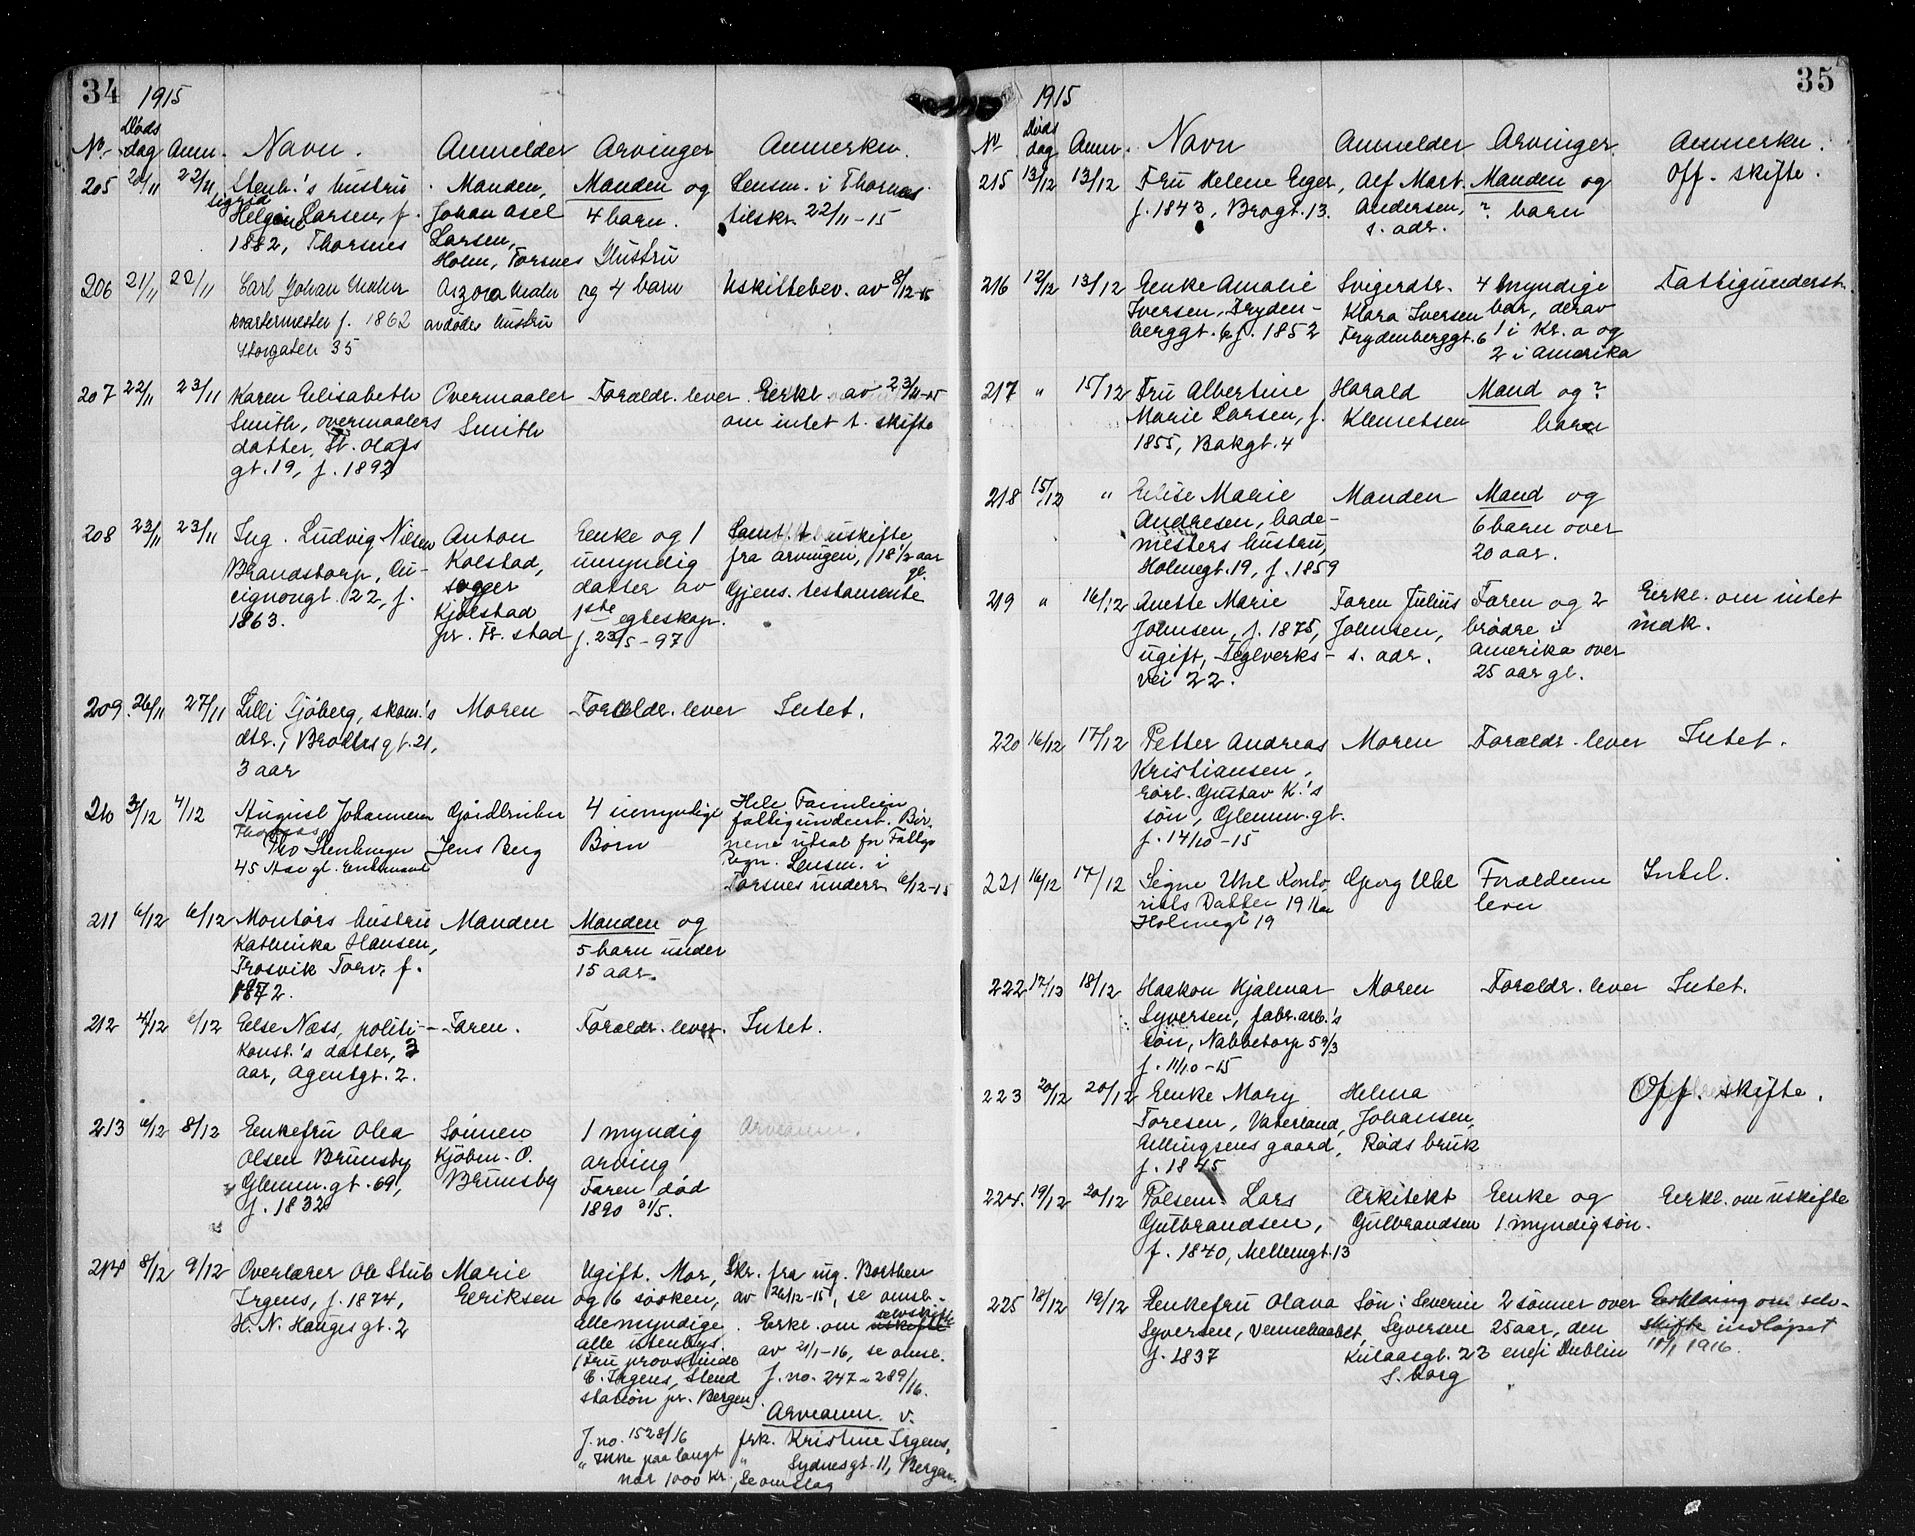 34
1915
No. Døds dag Anm. Navn. Anmelder Arvinger Anmerkn.
205 20/11 22/11 Stenh.'s hustru Manden, Manden og Lensm. i Thorsnes
Sigrid
Helgine Larsen, f. Johan Axel 4 barn. tilskr. 22/11-15
1882, Thorsnes Larsen,
Holm, Torsnes
206 21/11 22/11 Carl Johan Hustru og 4 barn Uskiftebev. av 8/12-15
kvartermester f. 1862 avdødes hustru
Storgaten 35
207 22/11 23/11 Karen Elisabeth Overmaaler Forældr. lever. Erkl. av 23/11-15
Smith, overmaalers Smith om intet t. skifte
datter, St. Olafs
gt. 19, f. 1892
208 23/11 23/11 Ing. Ludvig Nilsen Anton Enke og 1 Samt. t. uskifte
Brandstorp, Cicignongt. 22, f. Kolstad, umyndig fra arvingen, 18 1/2 aar gl.
1863. datter av Gjens. testamente
Kjølstad 1ste egteskap.
pr. Fr. stad f. 23/5-97
209. 26/11 27/11 Lilli Sjøberg, skom.'s Moren Forældr. lever Intet.
dtr., Brochsgt. 21,
3 aar
210 3/12 4/12 August Johannesen Gaardbruker 4 umyndige Hele Familien
Thomas Jens Berg Børn fattigunderst. Bør-
45 Aar gl. Enkemand nene utsat for Fattigv.
Regn. Lensm. i
Torsnes underr. 6/12-15
211 6/12 6/12 Montørs hustru Manden Manden og
Kathinka Hansen, 5 barn under
Trosvik Torv, f. 15 aar.
1872.
212 4/12 6/12 Else Næss, politi- Faren. Forældr. lever. Intet.
konst.'s datter, 3
aar, Agentgt. 2.
213 6/12 8/12 Enkefru Olea Sønnen 1 myndig Arveanm.
Olsen Brunsby Kjøbm. O. arving
Glemm.gt. 69, Brunsby Faren død
f. 1832 1890 31/5.
214 8/12 9/12 Overlærer Ole Stub Marie Ugift. Mor, Skr. fra ing. Borthen
Irgens, f. 1874, Eeriksen og 6 søsken, av 26/12-15, se omsl.
H. N. Haugesgt. 2 alle myndige. Erkl. om uskifte selvskifte
alle utenbys. av 21/1-16, se omsl.
(Fru provstinde J. no. 247 - 289/16.
E. Irgens, Stend
station pr. Bergen). Arveanm. v.
J. no. 1528/16 frk. Kristine Irgens,
"Ikke paa langt Sydnesgt. 11, Bergen.
nær 1000 kr." Se omslag
35
1915
No. Døds dag Anm. Navn Anmelder Arvinger. Anmerkn.
215 13/12 13/12 Fru Helene Eeger, Alf Mart. Manden og Off. skifte.
f. 1843, Brogt. 13. Andersen, ? barn
s. adr.
216 12/12 13/12 Enke Amalie Svigerdtr. 4 myndige Fattigunderst.
Iversen, Fryden- Klara Iversen bar, derav
berggt. 6, f. 1852 Frydenberggt. 6 1 i Kr.a og
2 i Amerika
217 " 15/12 Fru Albertine Harald Mand og ?
Marie Larsen, f. Klemetsen barn
1855, Bakgt. 4
218 15/12 " Elise Marie Manden Mand og
Andresen, bade- 6 barn over
mesters hustru, 20 aar.
Holmegt. 19, f. 1859
219 " 16/12 Anette Marie Faren Julius Faren og 2 Erkl. om intet
Johnsen, f. 1875, Johnsen, brødre i indk.
ugift, Teglverks- s. adr. Amerika over
vei 22. 25 aar gl.
220 16/12 17/12 Petter Andreas Moren Forældr. lever Intet.
Kristiansen,
Gustav K.'s
søn, Glemm.gt.
f. 14/10-15
221 16/12 17/12 Signe Uhl Konto- Georg Uhl Forældrene Intet.
rists Datter 19 Aar lever
Holmegt 19
222 17/12 18/12 Haakon Hjalmar Moren Forældr. lever Intet.
Syversen, fabr.arb.'s
søn, Nabbetorp 59/3
f. 11/10-15
223 20/12 20/12 Enke Mary Helma Off. skifte.
Toresen, Vaterland, Johansen,
Ellingsens gaard, Røds bruk
f. 1845
224. 19/12 20/12 Pølsem. Lars Arkitekt Enke og Erkl. om uskifte
Gulbrandsen, Gulbrandsen 1 myndig søn.
f. 1840, Mellemgt. 13
225 18/12 19/12 Enkefru Olava Søn: Severin 2 sønner over Erklæring om selv-
Syversen, Vennehaabet, Syversen 25 aar, den skifte indløpet
f. 1837 Kulaasgt. 22 ene i Dublin 18/1 1916.
S. borg